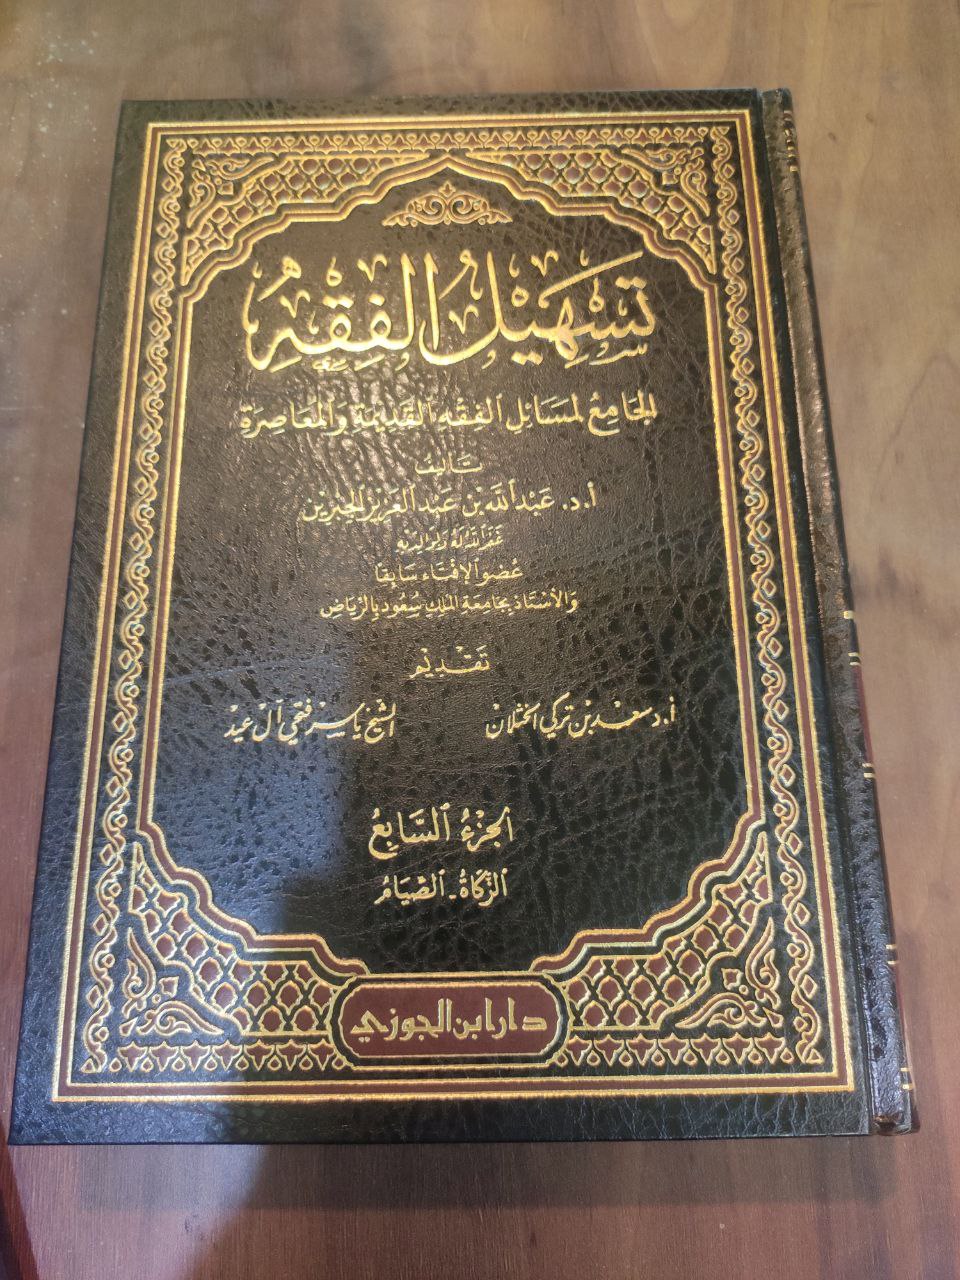 تسهيل الفقه
الجامع لمسائل الفقه القديمة والمعاصرة
تأليف
أ.د. عبد الله بن عبد العزيز الجبرين
غفر الله له ولوالديه
عضو الإفتاء سابقا
والأستاذ بجامعة الملك سعود بالرياض
تقديم
أ.د سعد بن تركي الخثلان الشيخ ياسر فتحي آل عيد
الجزء السابع
الزكاة - الصيام
دار ابن الجوزي